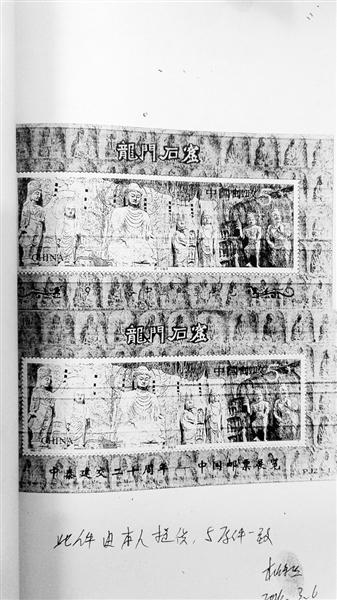 龍門石窟
中国邮政
CHINA
龍門石窟
中国邮政
CHINA
中泰建交二十周年 中国邮票展览
PJZ-1
此件由本人提供,与原件一致
3.6